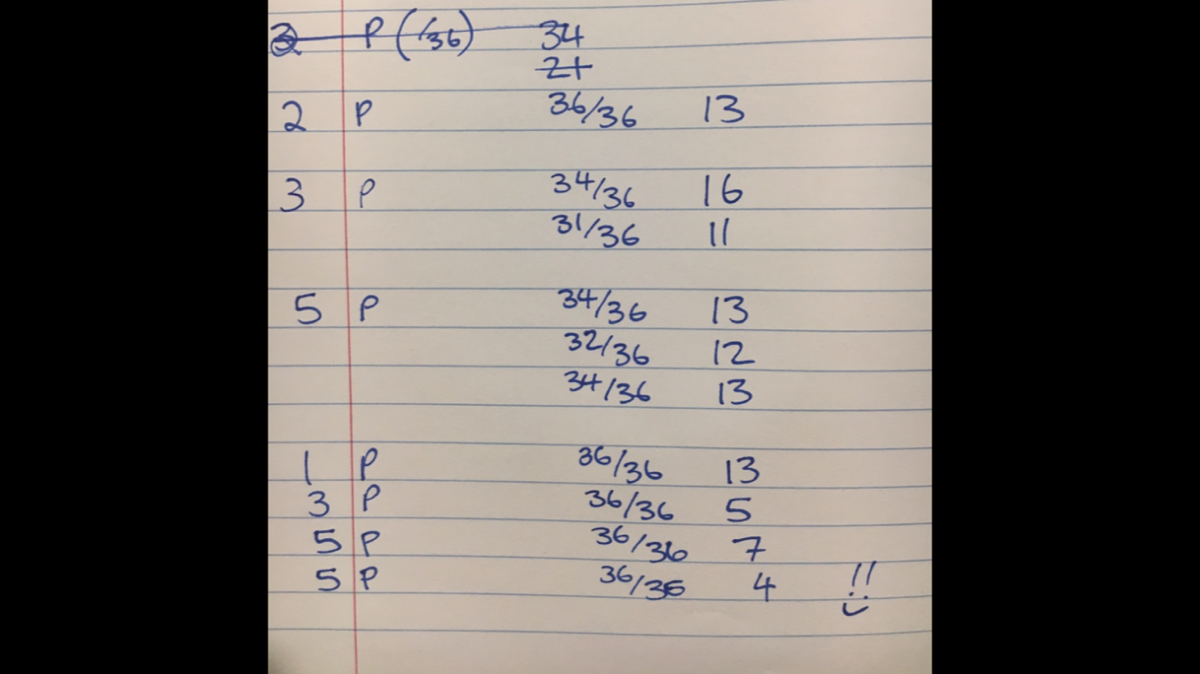 2 P (/36) 34
21
2 P 36/36 13
3 P 34/36 16
31/36 11
5 P 34/36 13
32/36 12
34/36 13
1 P 36/36 13
3 P 36/36 5
5 P 36/36 7
5 P 36/36 4 !!